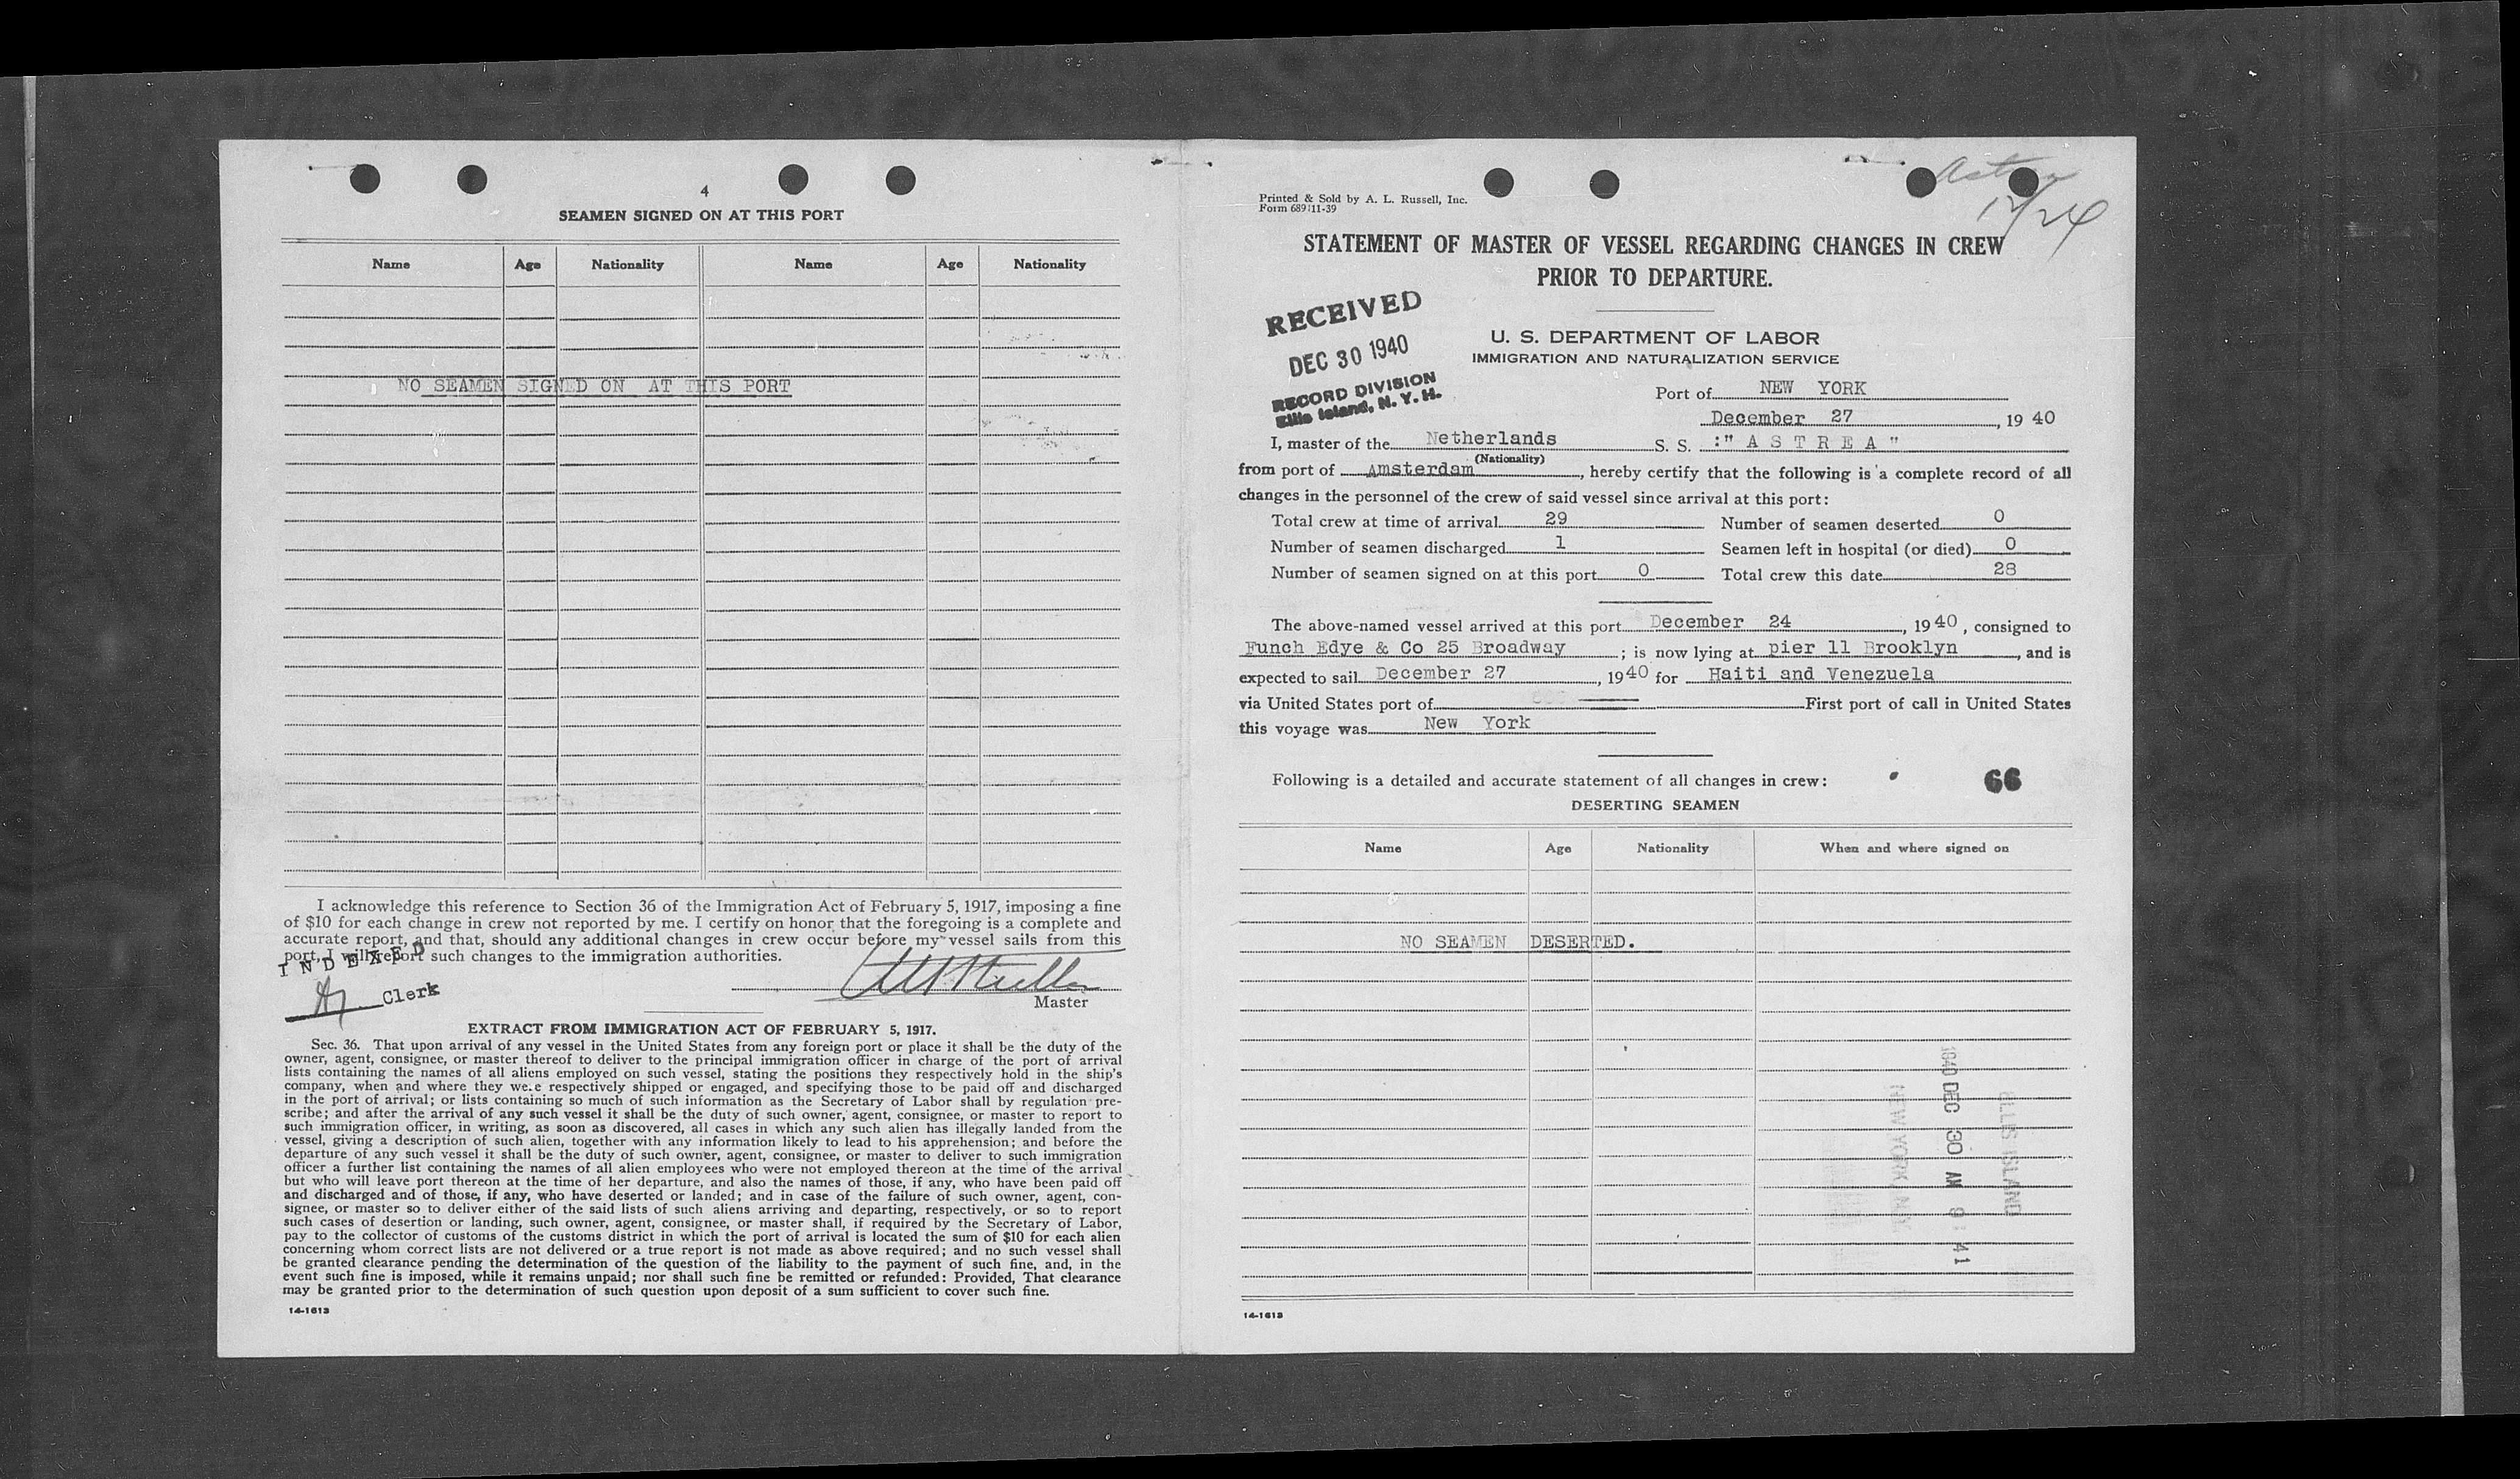 4
SEAMEN SIGNED ON AT THIS PORT
Name Age Nationality Name Age Nationality
NO SEAMEN SIGNED ON AT THIS PORT
I acknowledge this reference to Section 36 of the Immigration Act of February 5, 1917, imposing a fine
of $10 for each change in crew not reported by me. I certify on honor that the foregoing is a complete and
accurate report, and that, should any additional changes in crew occur before my vessel sails from this
port, I will report such changes to the immigration authorities.
INDEXED
Clerk
Master
EXTRACT FROM IMMIGRATION ACT OF FEBRUARY 5, 1917.
Sec. 36. That upon arrival of any vessel in the United States from any foreign port or place it shall be the duty of the
owner, agent, consignee, or master thereof to deliver to the principal immigration officer in charge of the port of arrival
lists containing the names of all aliens employed on such vessel, stating the positions they respectively hold in the ship's
company, when and where they were respectively shipped or engaged, and specifying those to be paid off and discharged
in the port of arrival; or lists containing so much of such information as the Secretary of Labor shall by regulation pre-
scribe; and after the arrival of any such vessel it shall be the duty of such owner, agent, consignee, or master to report to
such immigration officer, in writing, as soon as discovered, all cases in which any such alien has illegally landed from the
vessel, giving a description of such alien, together with any information likely to lead to his apprehension; and before the
departure of any such vessel it shall be the duty of such owner, agent, consignee, or master to deliver to such immigration
officer a further list containing the names of all alien employees who were not employed thereon at the time of the arrival
but who will leave port thereon at the time of her departure, and also the names of those, if any, who have been paid off
and discharged and of those, if any, who have deserted or landed; and in case of the failure of such owner, agent, con-
signee, or master so to deliver either of the said lists of such aliens arriving and departing, respectively, or so to report
such cases of desertion or landing, such owner, agent, consignee, or master shall, if required by the Secretary of Labor,
pay to the collector of customs of the customs district in which the port of arrival is located the sum of $10 for each alien
concerning whom correct lists are not delivered or a true report is not made as above required; and no such vessel shall
be granted clearance pending the determination of the question of the liability to the payment of such fine, and, in the
event such fine is imposed, while it remains unpaid; nor shall such fine be remitted or refunded: Provided, That clearance
may be granted prior to the determination of such question upon deposit of a sum sufficient to cover such fine.
14-1613
12/24
Printed & Sold by A. L. Russell, Inc.
Form 689 11-39
STATEMENT OF MASTER OF VESSEL REGARDING CHANGES IN CREW
PRIOR TO DEPARTURE.
RECEIVED
DEC 30 1940
RECORD DIVISION
Ellis Island, N. Y. H.
U. S. DEPARTMENT OF LABOR
IMMIGRATION AND NATURALIZATION SERVICE
Port of NEW YORK
December 27, 19 40
I, master of the Netherlands S. S. :" A S T R E A "
(Nationality)
from port of Amsterdam, hereby certify that the following is a complete record of all
changes in the personnel of the crew of said vessel since arrival at this port:
Total crew at time of arrival 29 Number of seamen deserted 0
Number of seamen discharged 1 Seamen left in hospital (or died) 0
Number of seamen signed on at this port 0 Total crew this date 28
The above-named vessel arrived at this port December 24, 19 40, consigned to
Funch Edye & Co 25 Broadway; is now lying at pier 11 Brooklyn, and is
expected to sail December 27, 19 40 for Haiti and Venezuela
via United States port of First port of call in United States
this voyage was New York
Following is a detailed and accurate statement of all changes in crew:
66
DESERTING SEAMEN
Name Age Nationality When and where signed on
NO SEAMEN DESERTED.
ELLIS ISLAND
1940 DEC 30 AM 9 41
NEW YORK, N.Y.
14-1613